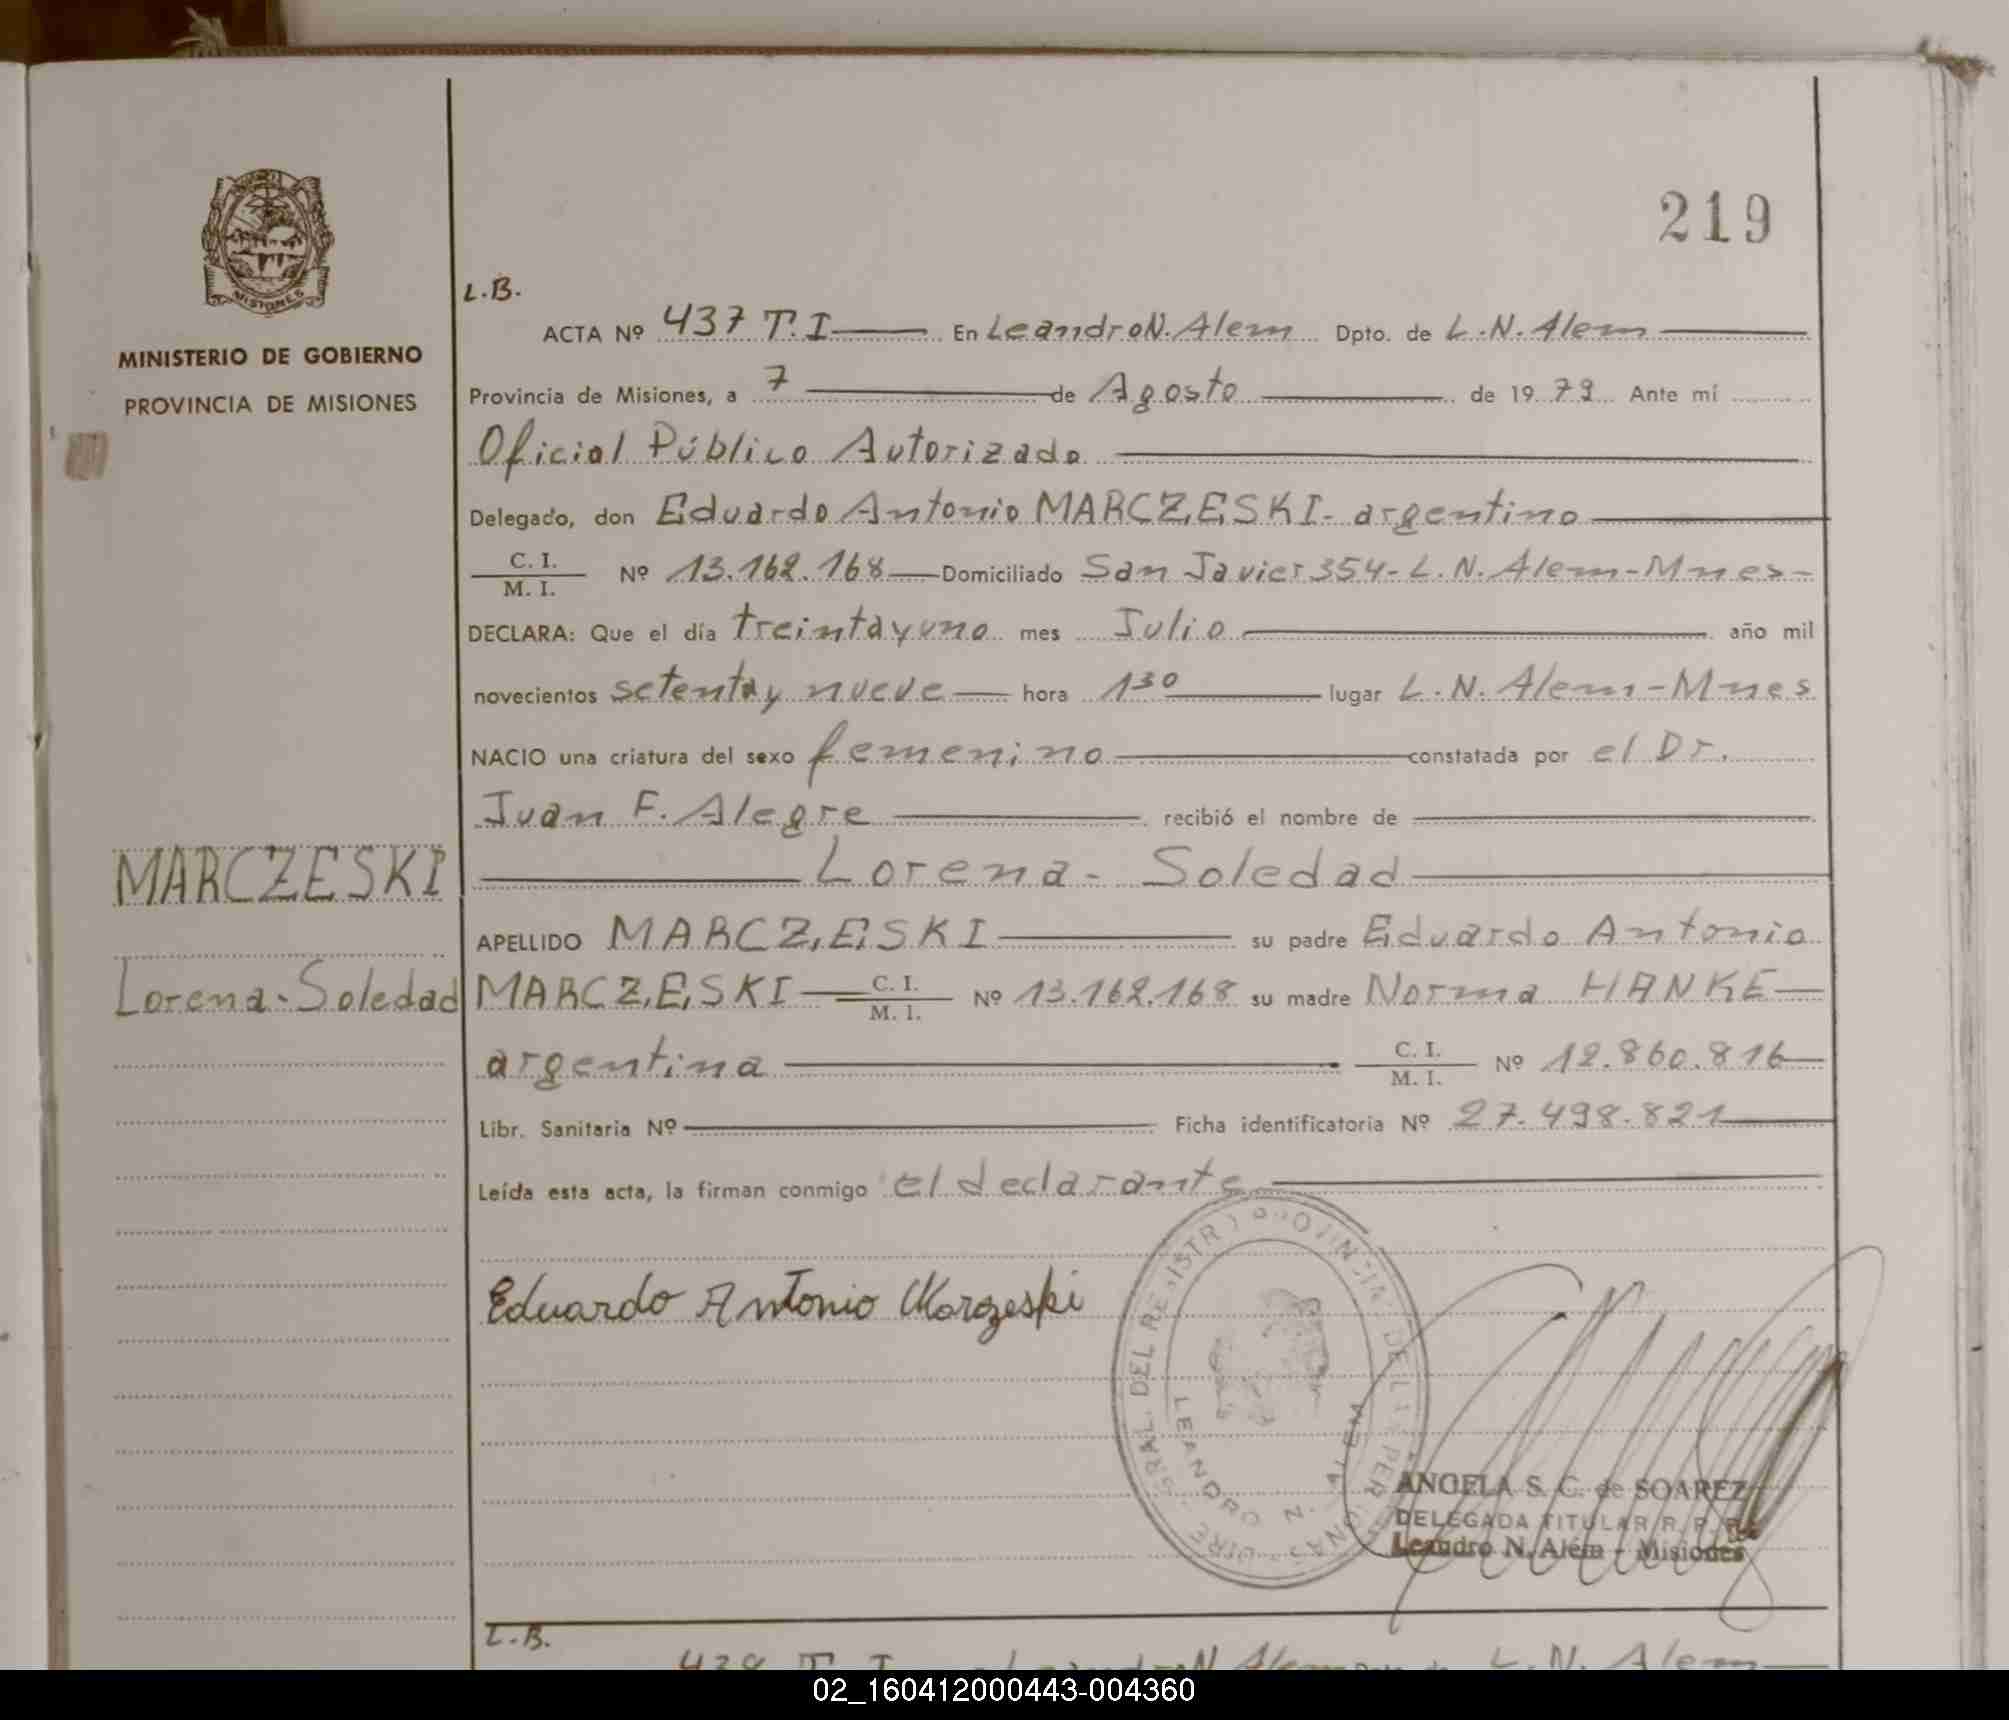 219
MISIONES
MINISTERIO DE GOBIERNO
PROVINCIA DE MISIONES
L.B.
ACTA Nº 437 T.I En Leandro N. Alem Dpto. de L.N. Alem
Provincia de Misiones, a 7 de Agosto de 19 79 Ante mí
Oficial Público Autorizado
Delegado, don Eduardo Antonio MARCZESKI - argentino
C. I.
M. I. Nº 13.162.168 Domiciliado San Javier 354 - L.N. Alem - Mnes -
DECLARA: Que el día treinta y uno mes Julio año mil
novecientos setenta y nueve hora 1 30 lugar L.N. Alem - Mnes
NACIO una criatura del sexo femenino constatada por el Dr.
Juan F. Alegre recibió el nombre de
Lorena - Soledad
MARCZESKI
Lorena - Soledad
APELLIDO MARCZESKI su padre Eduardo Antonio
MARCZESKI C. I. M. I. Nº 13.162.168 su madre Norma HANKE
argentina C. I. M. I. Nº 12.860.816
Libr. Sanitaria Nº Ficha identificatoria Nº 27.498.821
Leída esta acta, la firman conmigo el declarante
Eduardo Antonio Marczeski
LEANDRO N. ALEM
ANGELA S. C. de SOAREZ
DELEGADA TITULAR R. P. P.
Leandro N. Além - Misiones
L.B.
02_160412000443-004360